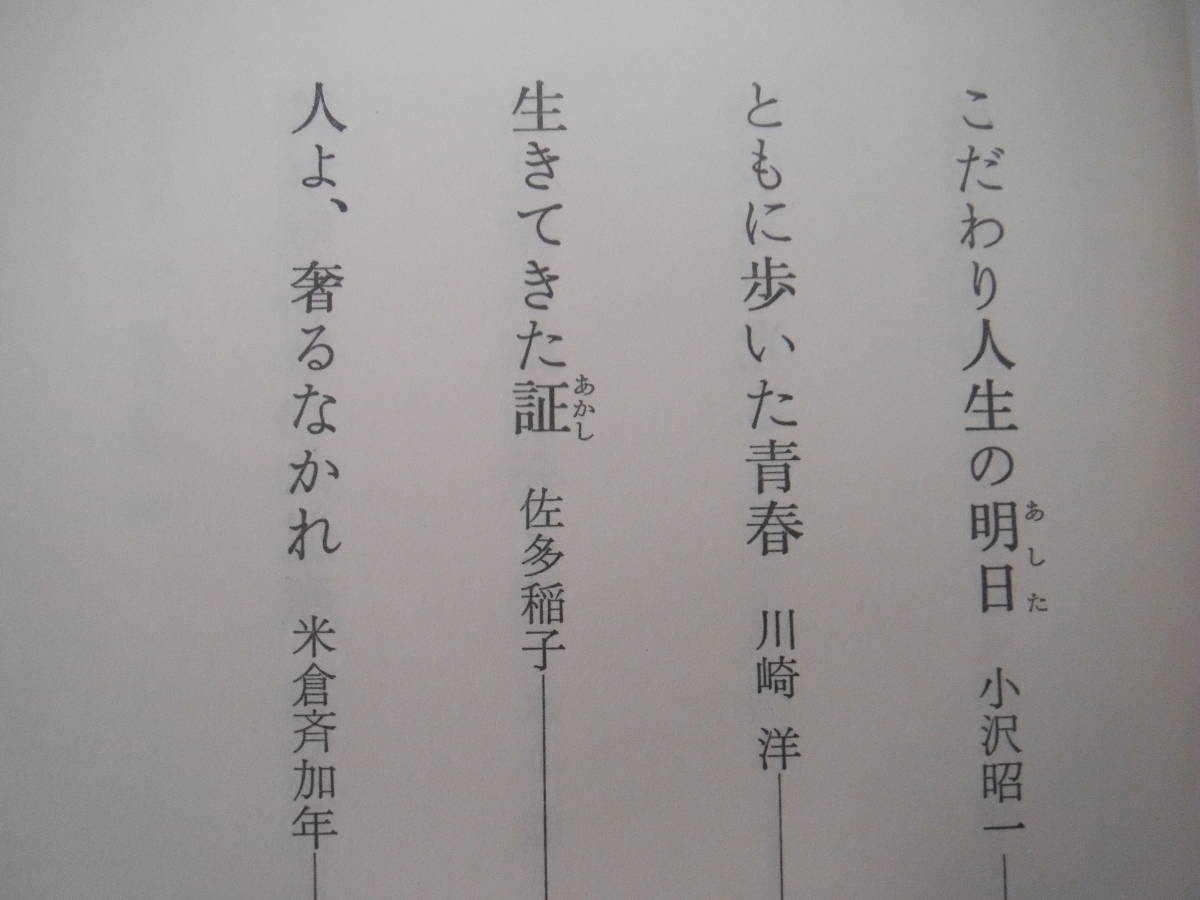 こだわり人生の明日 小沢昭一
あした
ともに歩いた青春 川崎 洋
生きてきた証 佐多稲子
あかし
人よ、奢るなかれ 米倉斉加年